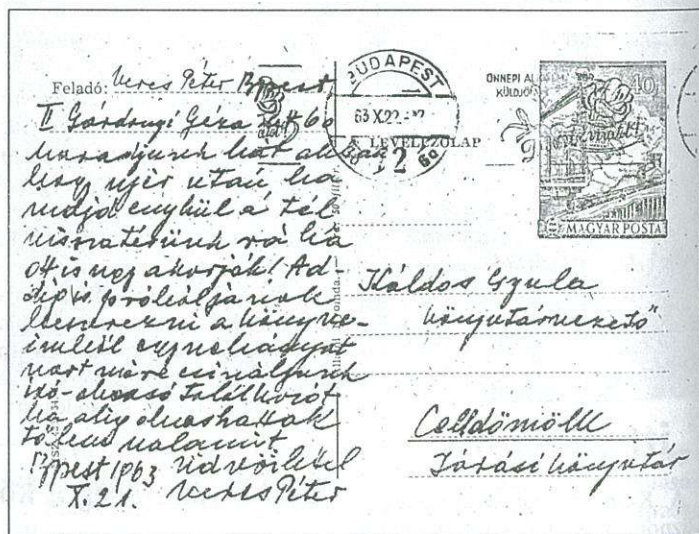 Feladó: Veres Péter Bpest,
II Gárdonyi Géza út 60
maradjunk hát abban
hogy ujév után, ha
majd enyhül a tél
visszatérünk rá ha
ők is ugy akarják! Ad-
dig is próbáljanak
beszerezni a könyve-
imből egynehányat
mert miért csináljunk
író-olvasó találkozót
ha alig olvashattak
tőlem valamit
Bpest 1963 üdvözlettel
X. 21. Veres Péter
BUDAPEST
63 X.22
LEVELEZŐLAP
2
ÜNNEPI AL
KÜLDJÖ
40
MAGYAR POSTA
Káldos Gyula
könyvtárvezető"
Celldömölk
Járási könyvtár